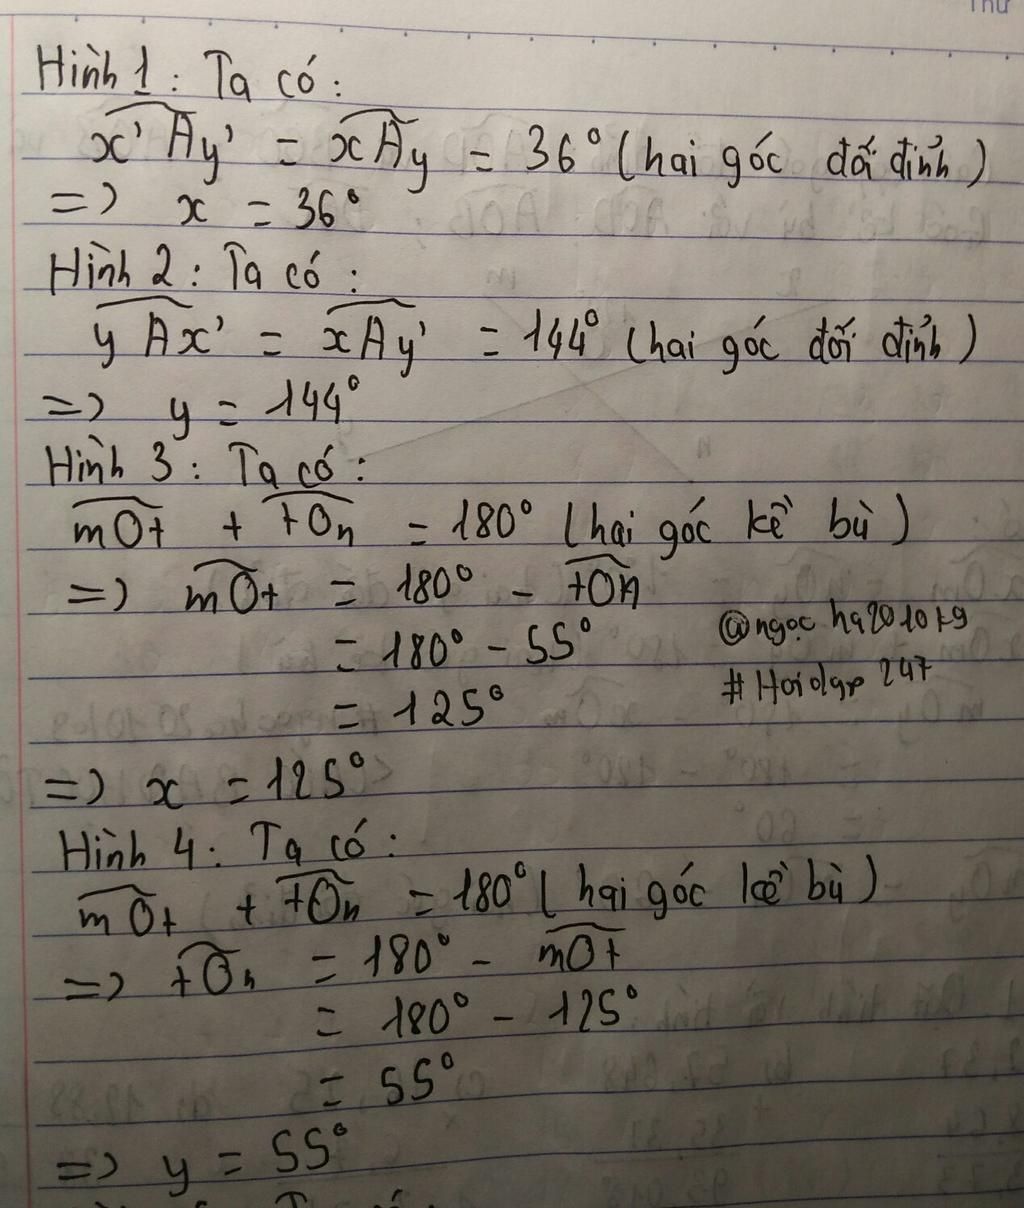 Thứ
Hình 1 : Ta có :
x'Ay' = xAy = 36° (hai góc đối đỉnh)
=> x = 36°
Hình 2 : Ta có :
yAx' = xAy' = 144° (hai góc đối đỉnh)
=> y = 144°
Hình 3 : Ta có :
mOt + tOn = 180° (hai góc kề bù)
=> mOt = 180° - tOn
= 180° - 55°
@ngọc ha2010kg
= 125°
#Hoidap 247
=> x = 125°
Hình 4 : Ta có :
mOt + tOn = 180° (hai góc kề bù)
=> tOn = 180° - mOt
= 180° - 125°
= 55°
=> y = 55°